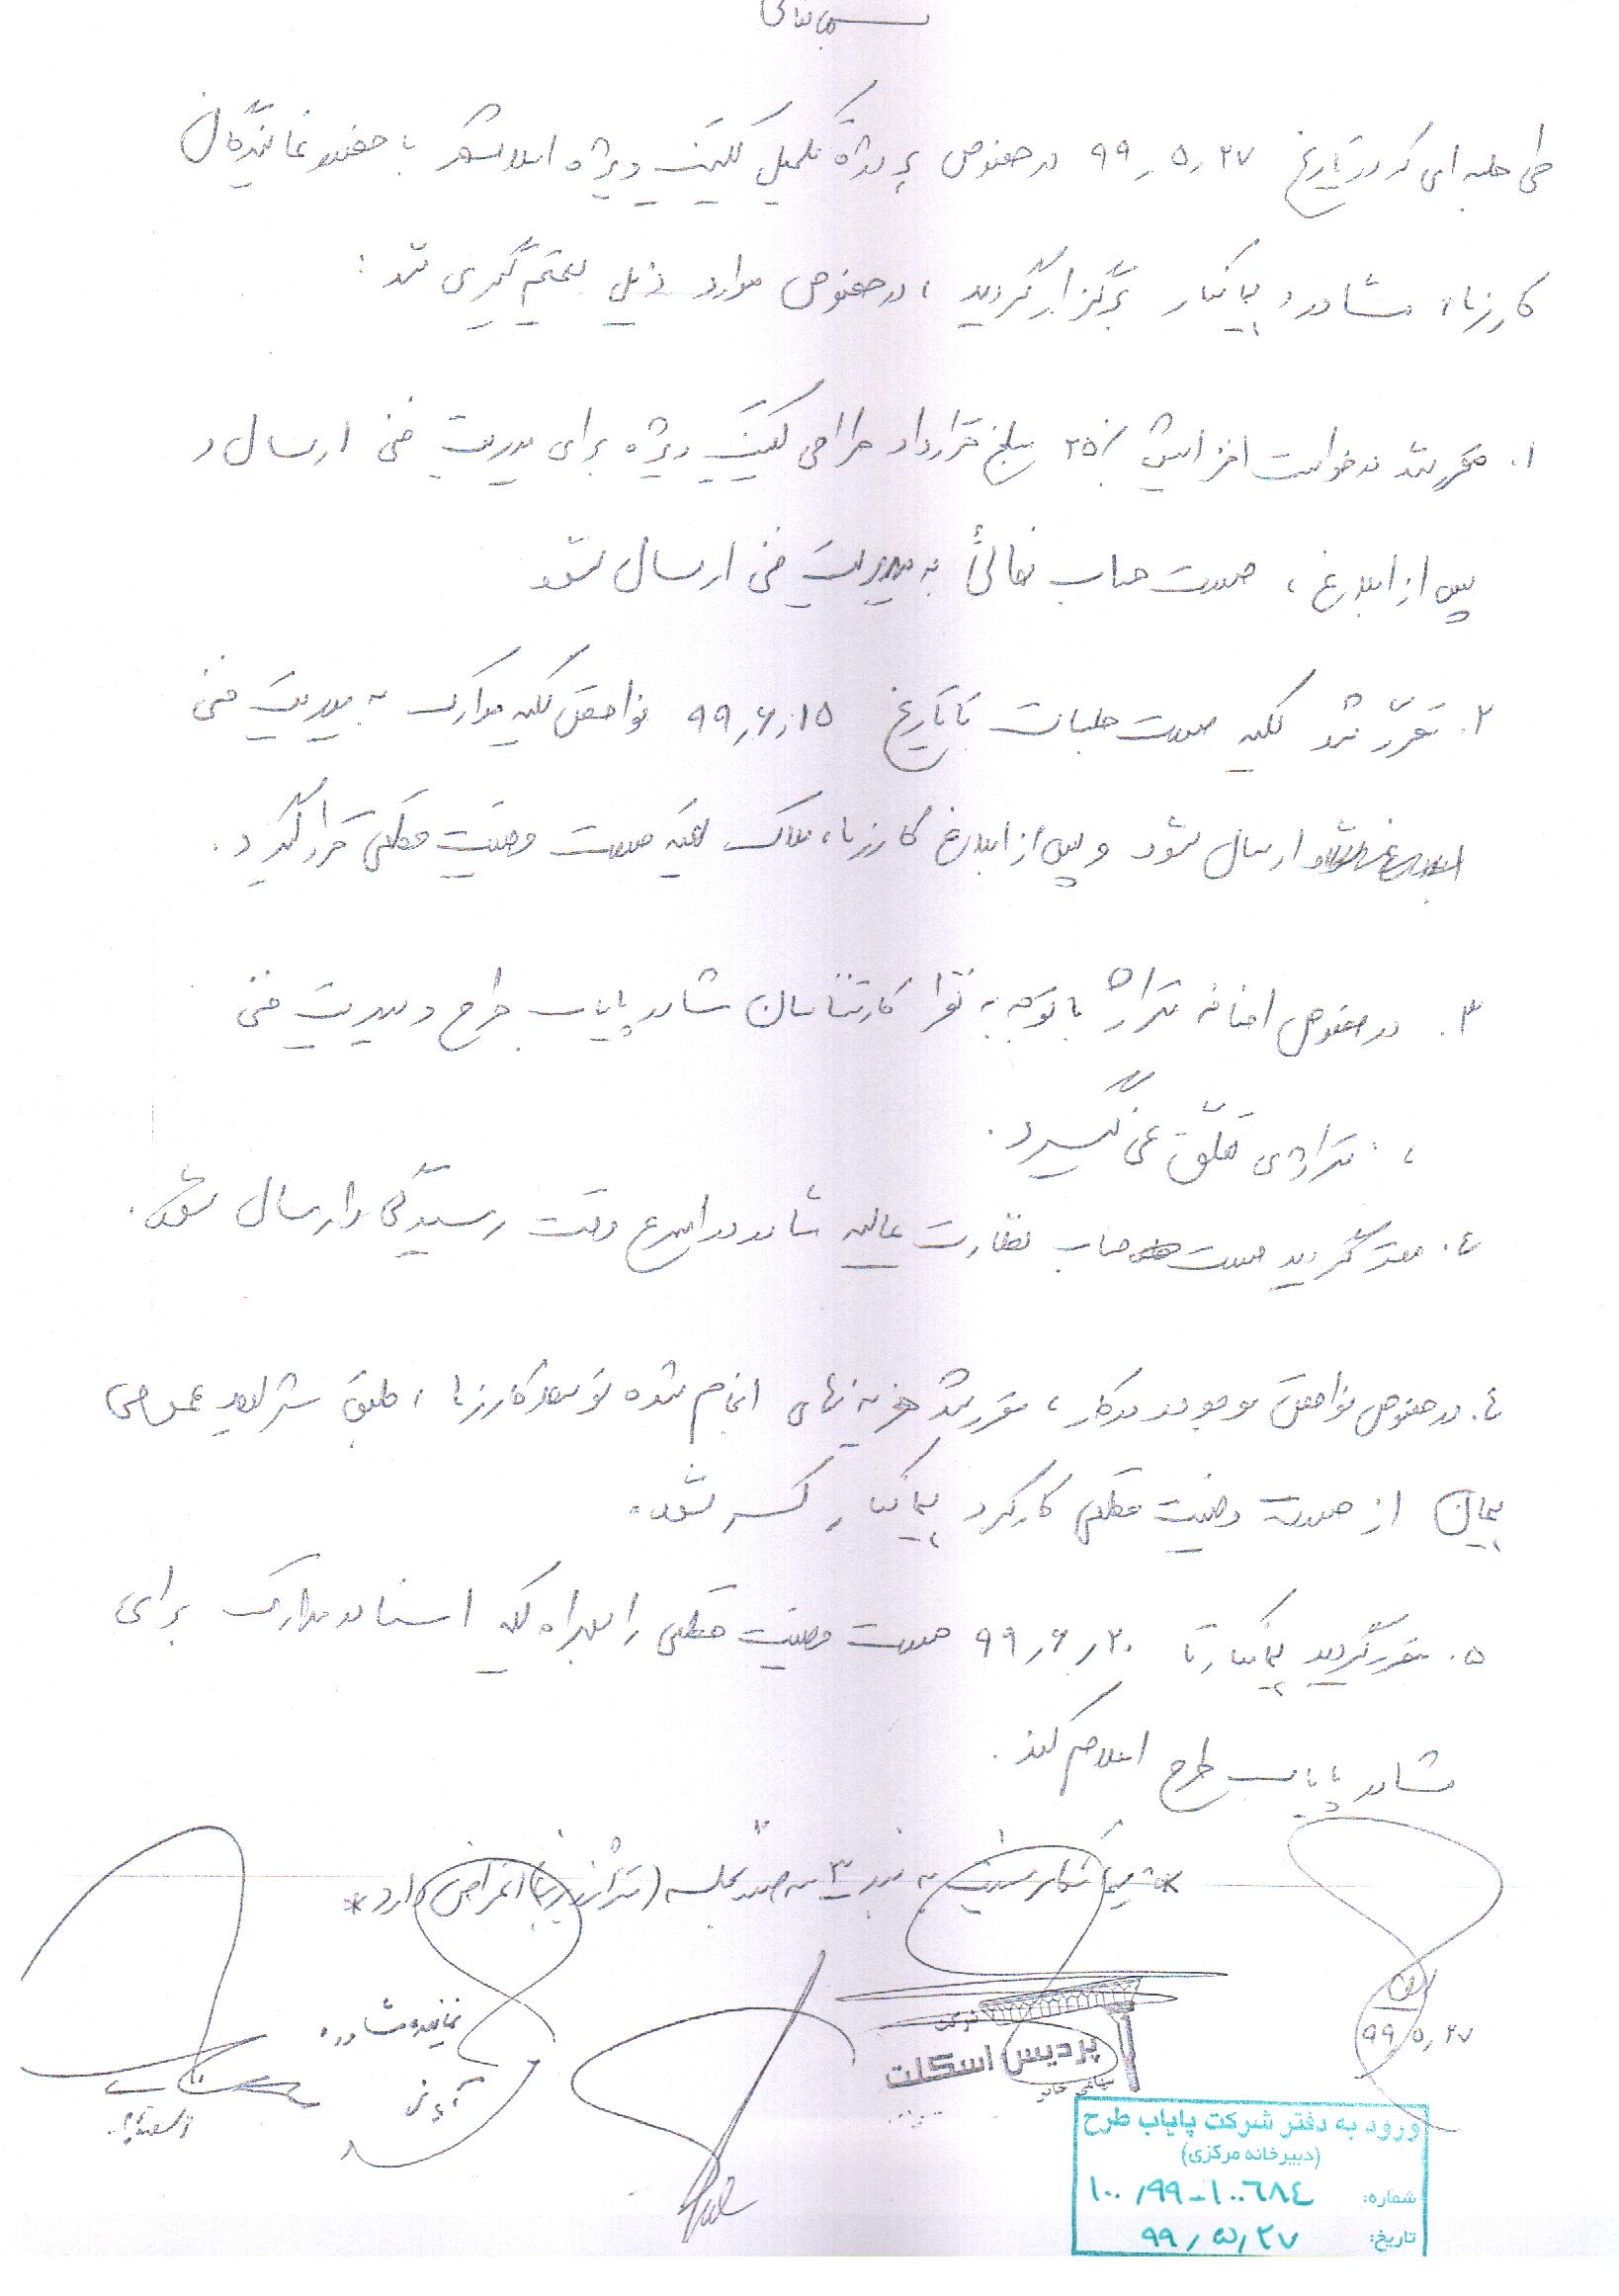 بسمه تعالی
طی جلسه ای که در تاریخ ۹۹٫۵٫۲۷ در خصوص پروژه تکمیل کلینیک ویژه اسلامشهر با حضور نمایندگان
کارفرما، مشاور و پیمانکار برگزار گردید، در خصوص موارد ذیل تصمیم گیری شد:
۱. مقرر شد درخواست افزایش ۲۵٪ مبلغ قرارداد طراحی کلینیک ویژه برای مدیریت فنی ارسال و
پس از ابلاغ، صورت حساب نهائی به مدیریت فنی ارسال شود
۲. مقرر شد کلیه صورت جلسات تا تاریخ ۹۹٫۶٫۱۵ نواقص کلیه مدارک به مدیریت فنی
ارسال شود و پس از ابلاغ کارفرما، ملاک تهیه صورت وضعیت قطعی قرار گیرد.
۳. در خصوص اضافه تراز با توجه به نظر کارشناسان مشاور پایاب طرح و مدیریت فنی
، ترازی تعلق نمی گیرد.
٤. مقرر گردید صورت حساب نظارت عالیه مشاور در اسرع وقت رسیدگی و ارسال شود.
٤. در خصوص نواقص موجود در کار، مقرر شد هزینه های انجام شده توسط کارفرما، طبق شرایط عمومی
پیمان از صورت وضعیت قطعی کارکرد پیمانکار کسر شود.
۵. مقرر گردید پیمانکار تا ۹۹٫۶٫۲۰ صورت وضعیت قطعی را بهمراه کلیه اسناد و مدارک برای
مشاور پایاب طرح اعلام کند.
*پیمانکار نسبت به بند ۳ صورتجلسه اعتراض دارد*
نماینده مشاور
۹۹٫۵٫۲۷
شرکت
پردیس اسکلت
سهامی خاص
ورود به دفتر شرکت پایاب طرح
(دبیرخانه مرکزی)
شماره: ۱۰۰٫۹۹-۱۰۰٦٨٤
تاریخ: ۹۹٫۵٫۲۷